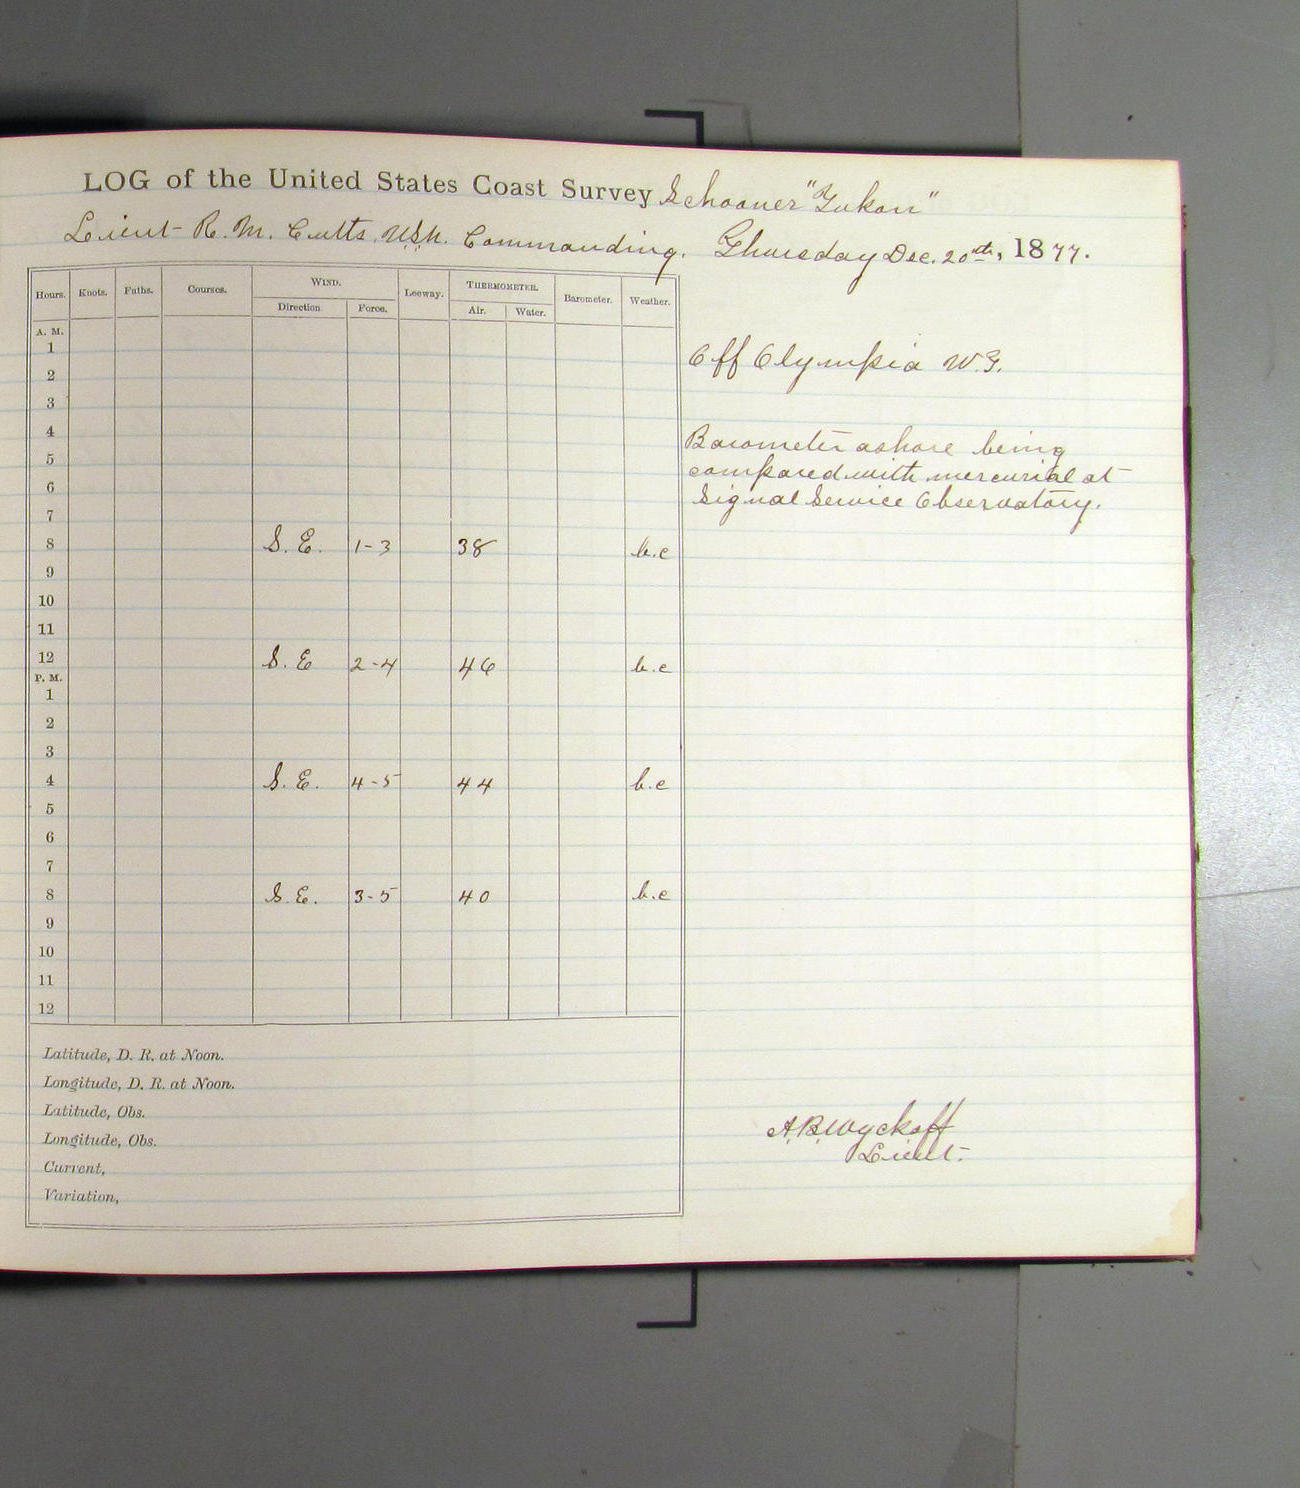 LOG of the United States Coast Survey Schooner "Yukon"
Lieut R. M. Cutts, U.S.N. Commanding. Thursday Dec. 20th, 1877.
Hours. Knots. Faths. Courses. WIND. Leeway. THERMOMETER. Barometer. Weather.
Direction Force. Air. Water.
A. M.
1
Off Olympia W.T.
2
3
4
Barometer ashore being
5
compared with mercurial at
6
Signal Service Observatory.
7
8 S. E. 1-3 38 b.c
9
10
11
12 S. E 2-4 46 b.c
P. M.
1
2
3
4 S. E. 4-5 44 b.c
5
6
7
8 S. E. 3-5 40 b.c
9
10
11
12
Latitude, D. R. at Noon.
Longitude, D. R. at Noon.
Latitude, Obs.
Longitude, Obs.
Current,
Variation,
A.B. Wyckoff
Lieut.